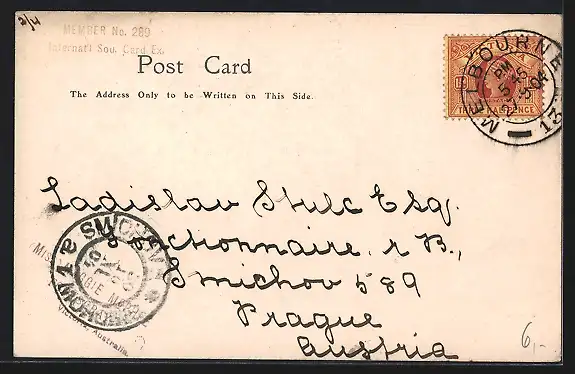 3/4
MEMBER No. 289
Internat'l Sou. Card Ex.
Post Card
The Address Only to be Written on This Side.
VICTORIA
THREE HALFPENCE
MELBOURNE
PM
5 04
13
Ladislav Stulc Esq.
Fonctionnaire. r B.,
Smichov 589
Prague
Austria
SMICHOV 1
Australia.
6,-